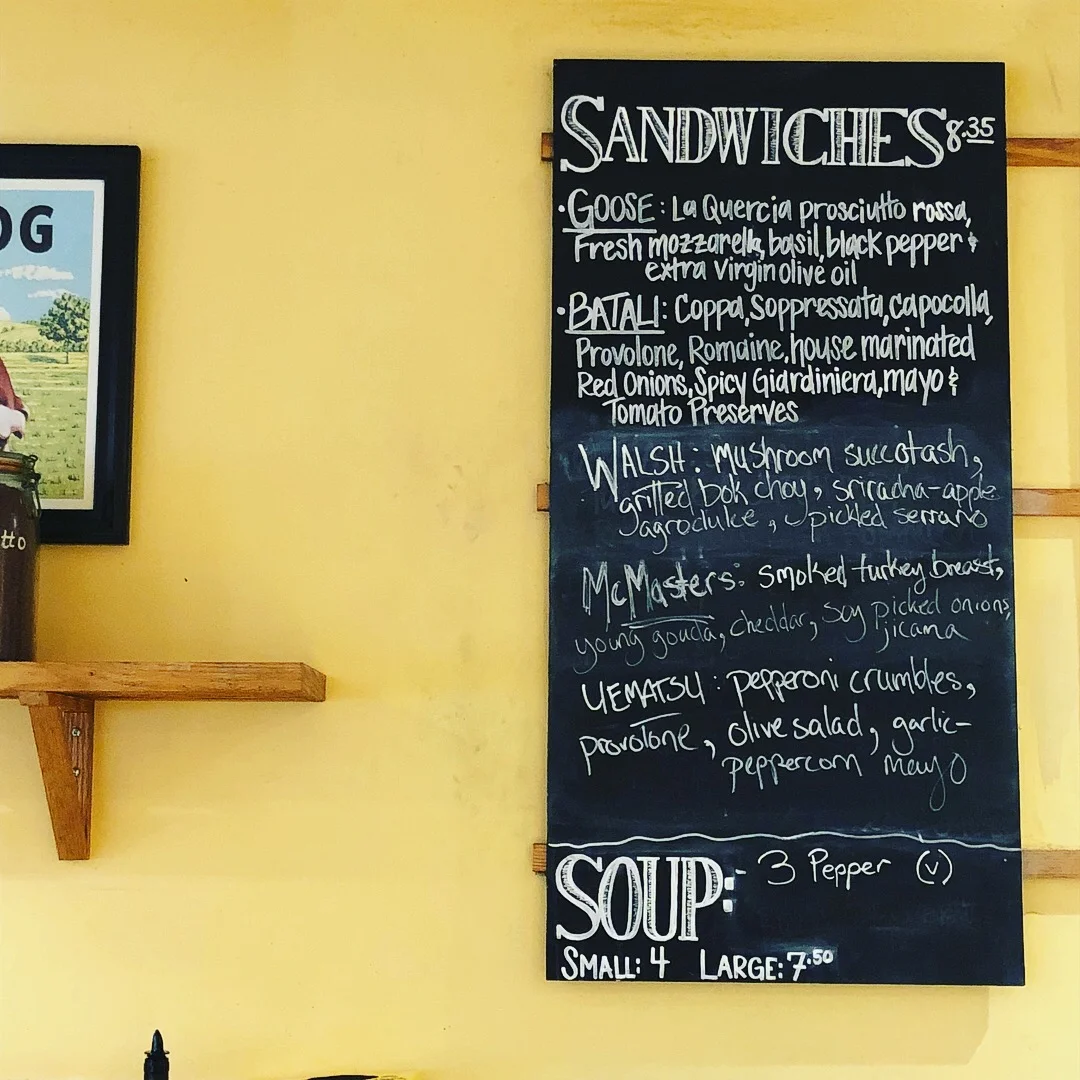 OG
tto
SANDWICHES 8.35
• GOOSE: La Quercia prosciutto rossa,
Fresh mozzarella, basil, black pepper &
extra virgin olive oil
• BATALI: Coppa, Soppressata, capocolla,
Provolone, Romaine, house marinated
Red Onions, Spicy Giardiniera, mayo &
Tomato Preserves
WALSH: mushroom succotash,
grilled bok choy, sriracha-apple
agrodulce, pickled serrano
McMasters: smoked turkey breast,
young gouda, cheddar, soy picked onions,
jicama
UEMATSU: pepperoni crumbles,
provolone, olive salad, garlic-
peppercorn mayo
SOUP: 3 Pepper (v)
SMALL: 4 LARGE: 7.50